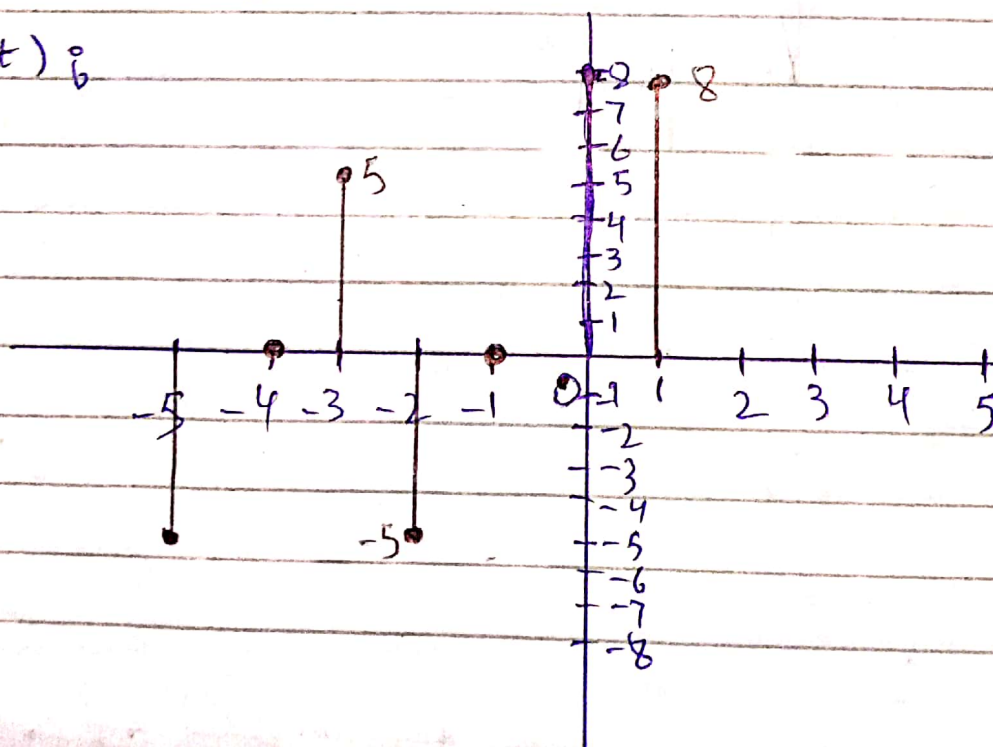 t) i
8
8
7
6
5
5
4
3
2
1
-5 -4 -3 -2 -1 0 1 2 3 4 5
-1
-2
-3
-4
-5
-5
-6
-7
-8